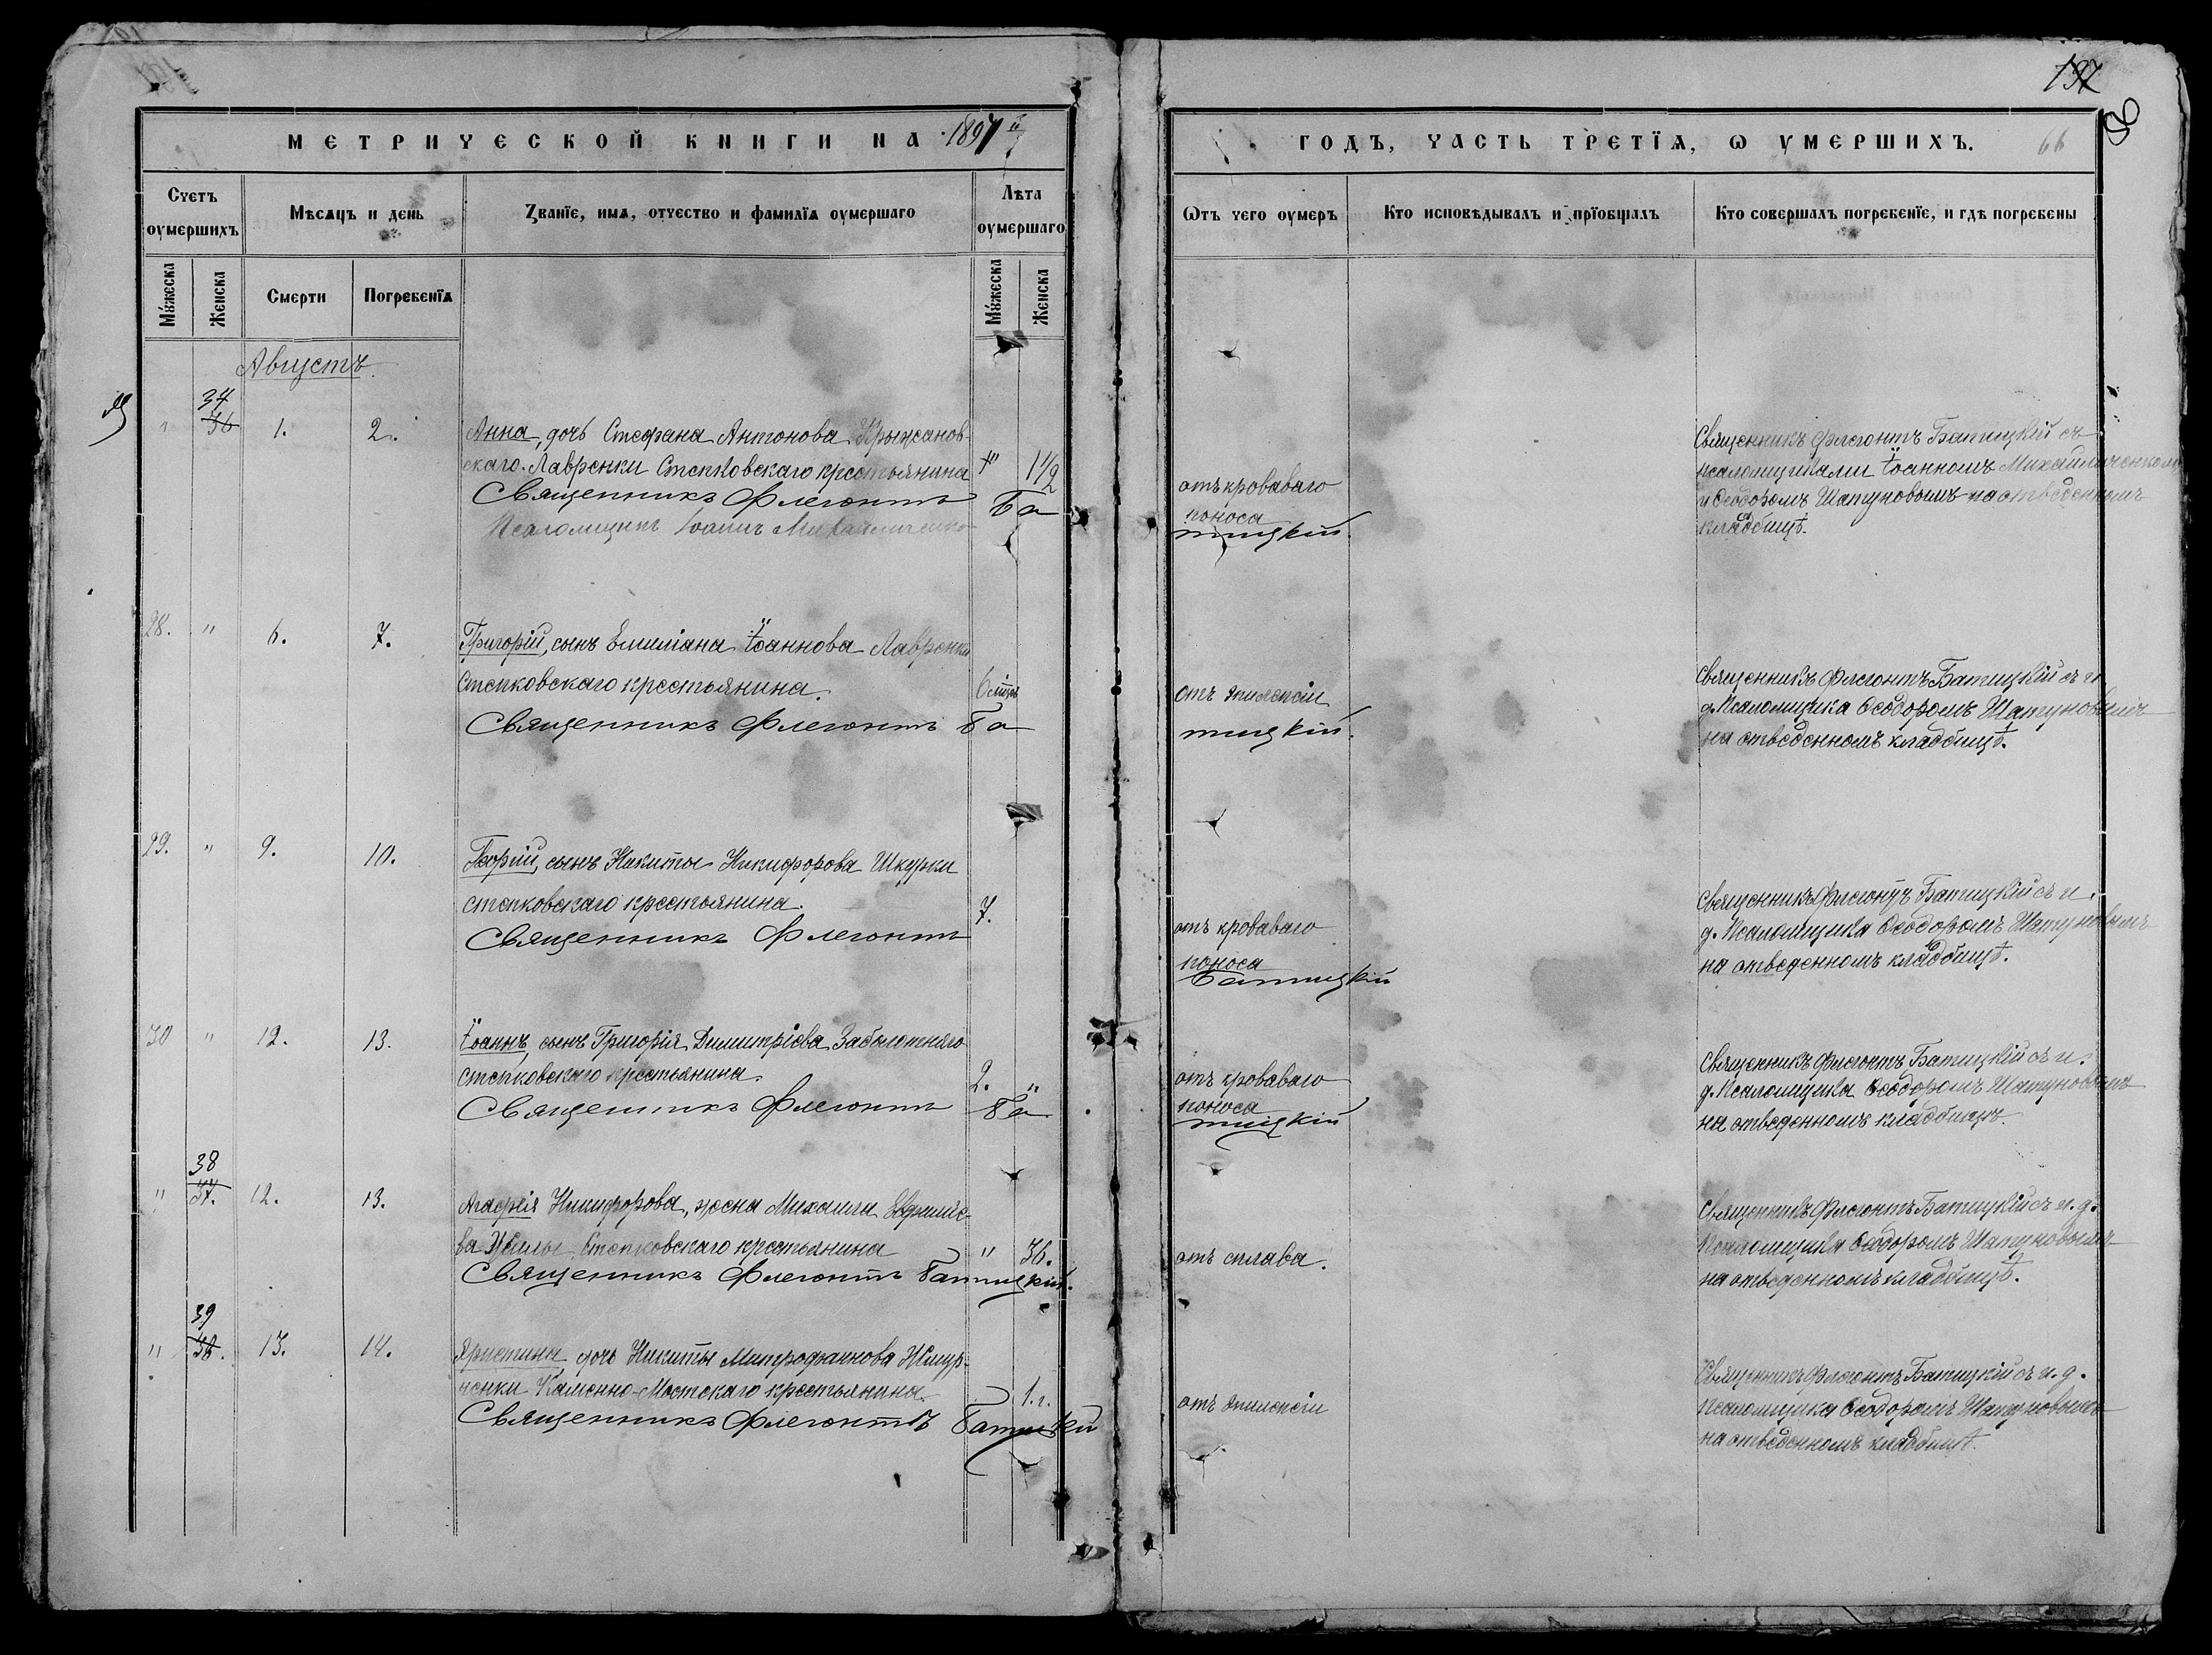 МЕТРИЧЕСКОЙ КНИГИ НА 1897й
Счетъ оумершихъ
Мѣсяцъ и день
Званїе, имя, отчество и фамилїя оумершаго
Лѣта оумершаго
Мꙋжеска
Женска
Смерти
Погребенїя
Мꙋжеска
Женска
Августъ.
37
36
" 1. 2. Анна, дочь Стефана Антонова Крыжанов-
скаго-Лавренки Степковскаго крестьянина 1 1/2
Священникъ Флегонтъ Ба
Псаломщикъ Іоаннъ Михайличенко
28. " 6. 7. Григорій, сынъ Емиліана Іоаннова Лавренки
Степковскаго крестьянина.
Священникъ Флегонтъ Ба
29. " 9. 10. Георгій, сынъ Никиты Никифорова Шкурки
степковскаго крестьянина. 7.
Священникъ Флегонтъ
30 " 12. 13. Іоаннъ, сынъ Григорія Димитріева Заболотняго
степковскаго крестьянина. 2. "
Священникъ Флегонтъ Ба
38
" 37. 12. 13. Агафія Никифорова, жена Михаила Евфиміе-
ва Жилы Степковскаго крестьянина " 36.
Священникъ Флегонтъ Батицкій.
39
" 38. 13. 14. Христина, дочь Никиты Митрофанова Жмур-
ченки Каменно-Мостскаго крестьянина 1.г.
Священникъ Флегонтъ Батицкій
137
66
ГОДЪ, ЧАСТЬ ТРЕТЇЯ, Ѡ УМЕРШИХЪ.
Ѿтъ чего оумеръ
Кто исповѣдывалъ и прїобщалъ
Кто совершалъ погребенїе, и гдѣ погребены
Священникъ Флегонтъ Батицкій съ
псаломщиками Іоанномъ Михайличенкомъ
отъ кроваваго и Ѳеодоромъ Шатуновымъ на отведенномъ
поноса кладбищѣ.
тицкій.
Священникъ Флегонтъ Батицкій съ и
отъ эпилепсіи д. Псаломщика Ѳеодоромъ Шатуновымъ
тицкій. на отведенномъ кладбищѣ.
Священникъ Флегонтъ Батицкій съ и.
отъ кроваваго д. Псаломщика Ѳеодоромъ Шатуновымъ
поноса на отведенномъ кладбищѣ.
Батицкій
Священникъ Флегонтъ Батицкій съ и.
отъ кроваваго д. Псаломщика Ѳеодоромъ Шатуновымъ
поноса на отведенномъ кладбищѣ.
тицкій
Священникъ Флегонтъ Батицкій съ и. д.
отъ сплава. Псаломщика Ѳеодоромъ Шатуновымъ
на отведенномъ кладбищѣ.
Священникъ Флегонтъ Батицкій съ и. д.
отъ эпилепсіи Псаломщика Ѳеодоромъ Шатуновымъ
на отведенномъ кладбищѣ.